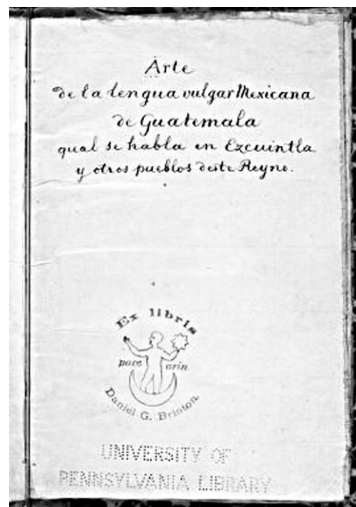 Arte
de la lengua vulgar Mexicana
de Guatemala
qual se habla en Ezcuintla
y otros pueblos deste Reyno.
Ex libris
pace arin
Daniel G. Brinton
UNIVERSITY OF
PENNSYLVANIA LIBRARY